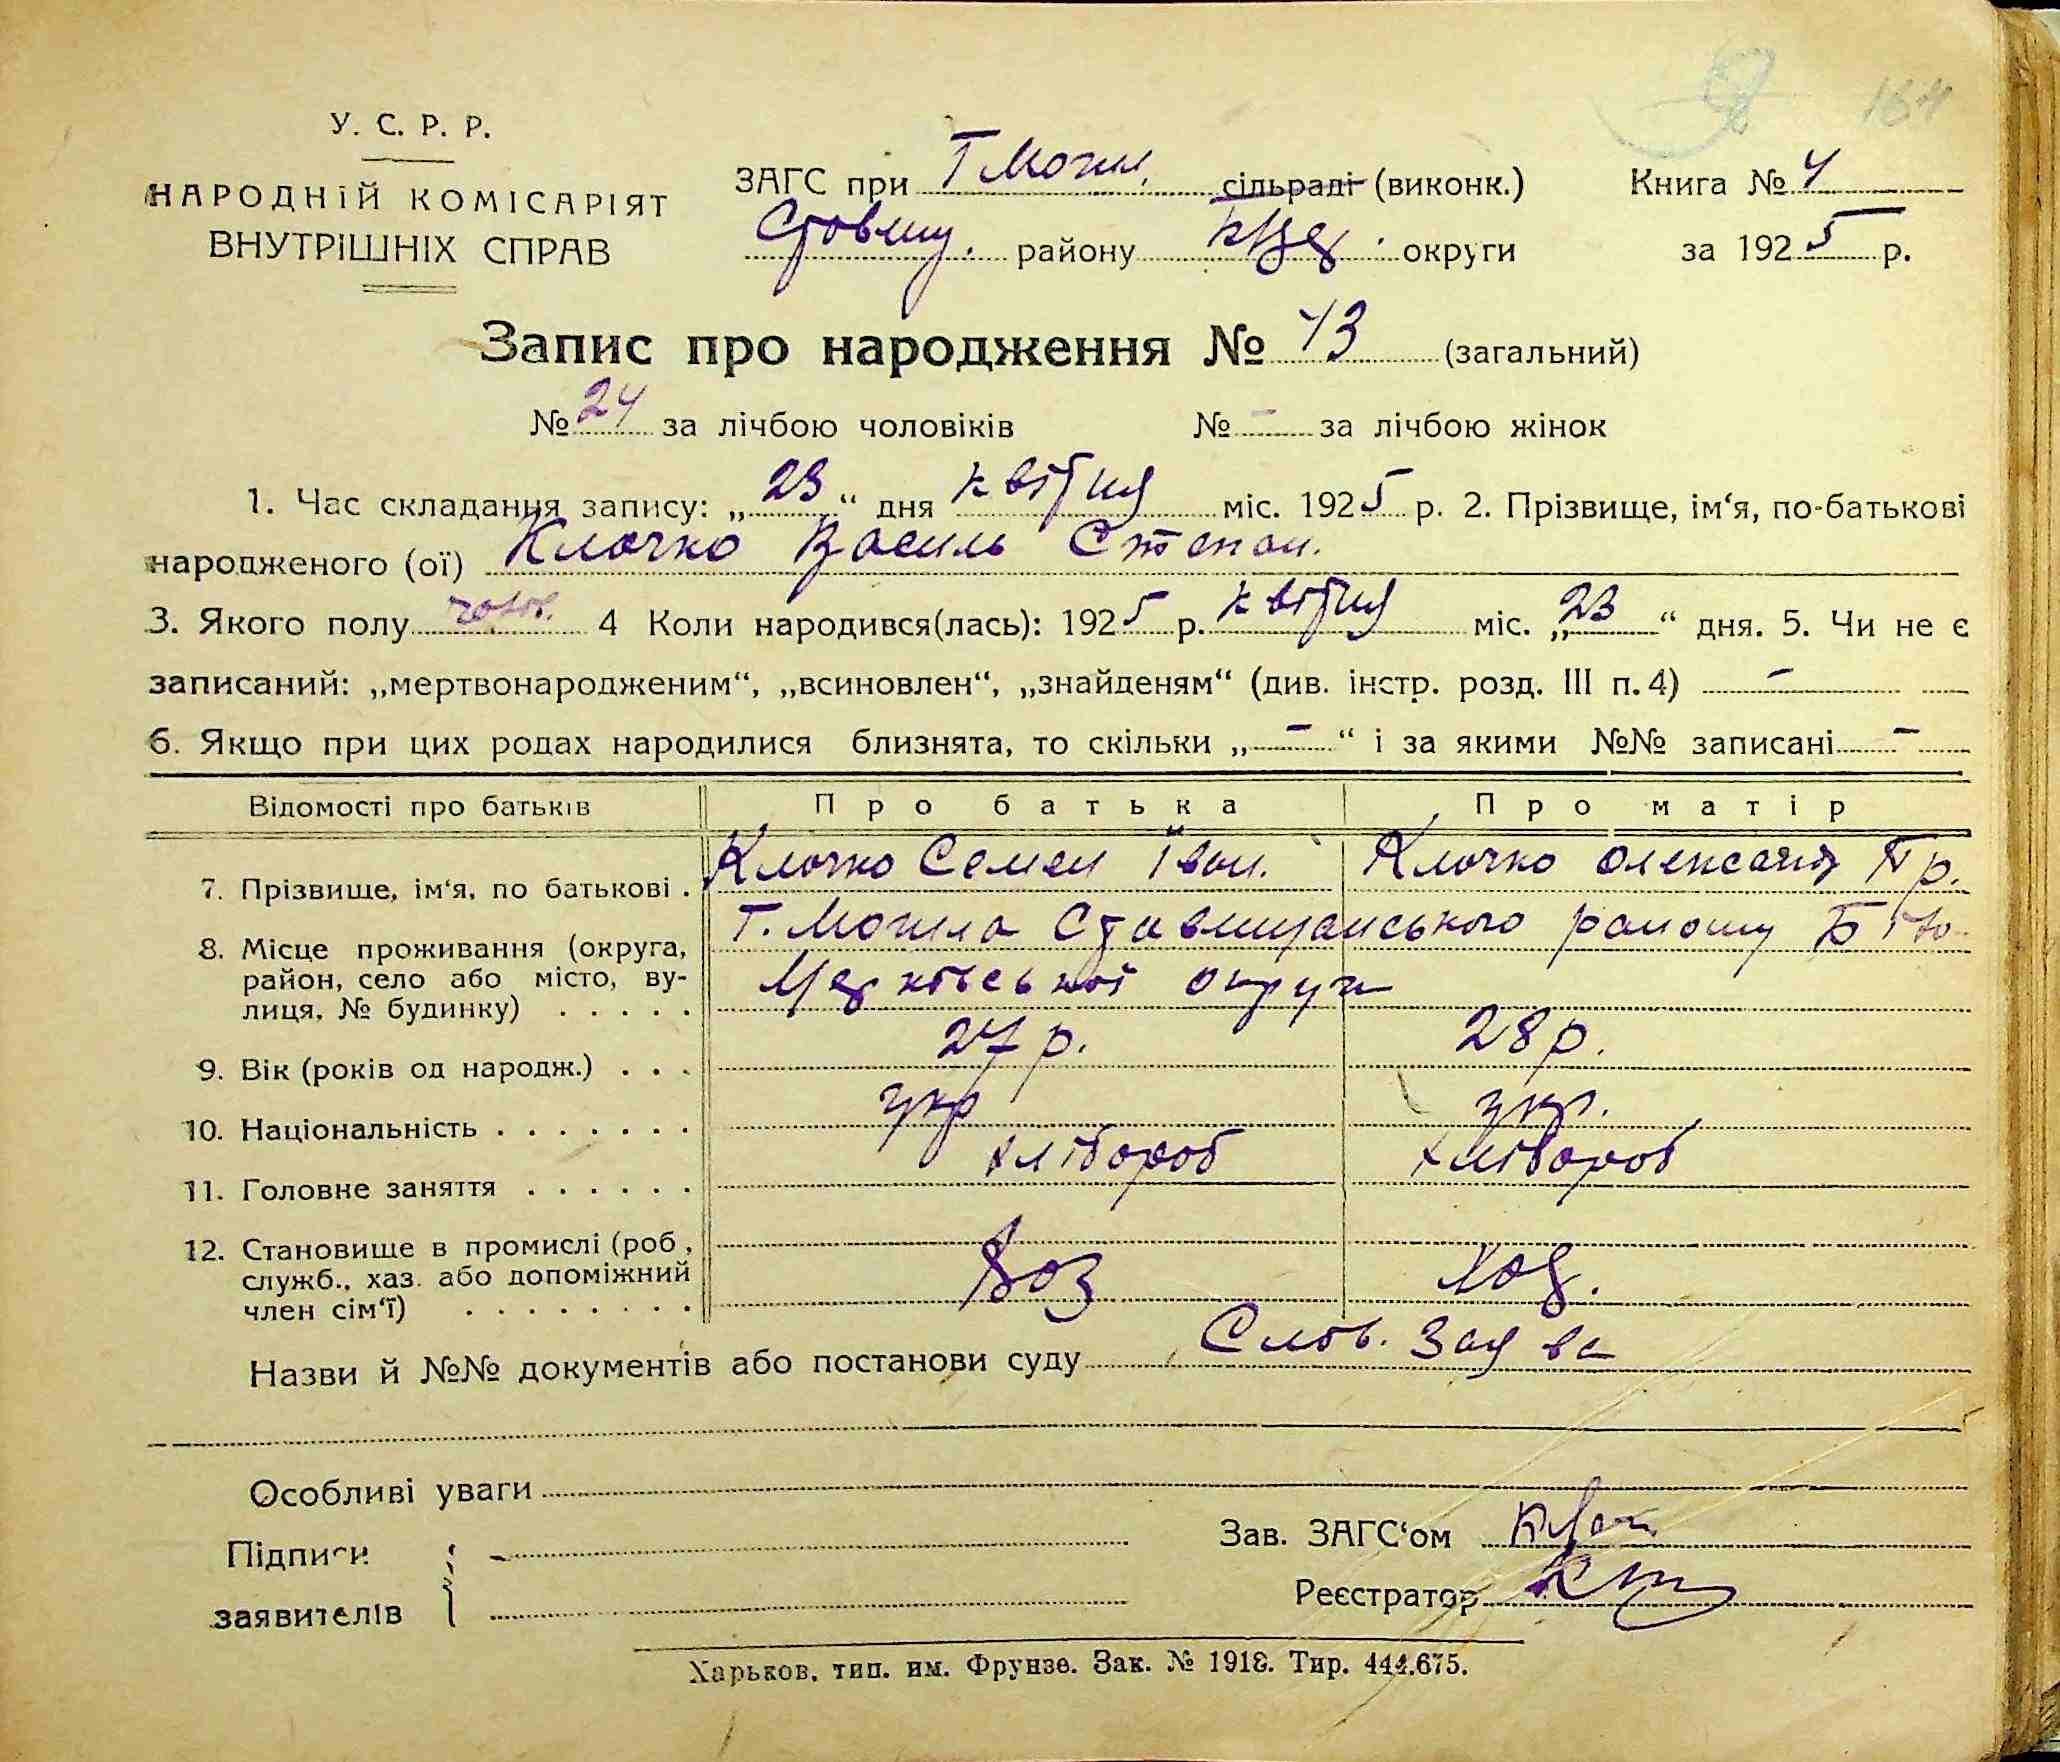 164
У. С. Р. Р.
НАРОДНІЙ КОМІСАРІЯТ
ВНУТРІШНІХ СПРАВ
ЗАГС при Т Могил. сільраді (виконк.) Книга № 4
Ставищ. району БЦер. округи за 1925 р.
Запис про народження № 43 (загальний)
№ 24 за лічбою чоловіків № - за лічбою жінок
1. Час складання запису: „23“ дня квітня міс. 1925 р. 2. Прізвище, ім‘я, по-батькові
народженого (ої) Клочко Василь Степан.
3. Якого полу чолов. 4 Коли народився(лась): 1925 р. квітня міс. „23“ дня. 5. Чи не є
записаний: „мертвонародженим“, „всиновлен“, „знайденям“ (див. інстр. розд. III п. 4) -
6. Якщо при цих родах народилися близнята, то скільки „-“ і за якими №№ записані -
Відомості про батьків Про батька Про матір
7. Прізвище, ім‘я, по батькові . Клочко Семен Іван. Клочко Олександ Пр.
8. Місце проживання (округа, Т. Могила Ставищанського району Біло-
район, село або місто, ву- Церківської округи
лиця, № будинку) . . . . .
9. Вік (років од народж.) . . . 27 р. 28 р.
10. Національність . . . . . . . укр укр.
11. Головне заняття . . . . . . хлібороб хлібороб
12. Становище в промислі (роб,
служб., хаз. або допоміжний
член сім‘ї) . . . . . . . .
Назви й №№ документів або постанови суду Слов. Заява
Особливі уваги
Підписи - Зав. ЗАГС‘ом
заявителів Реєстратор
Харьков, тип. им. Фрунзе. Зак. № 1918. Тир. 444.675.